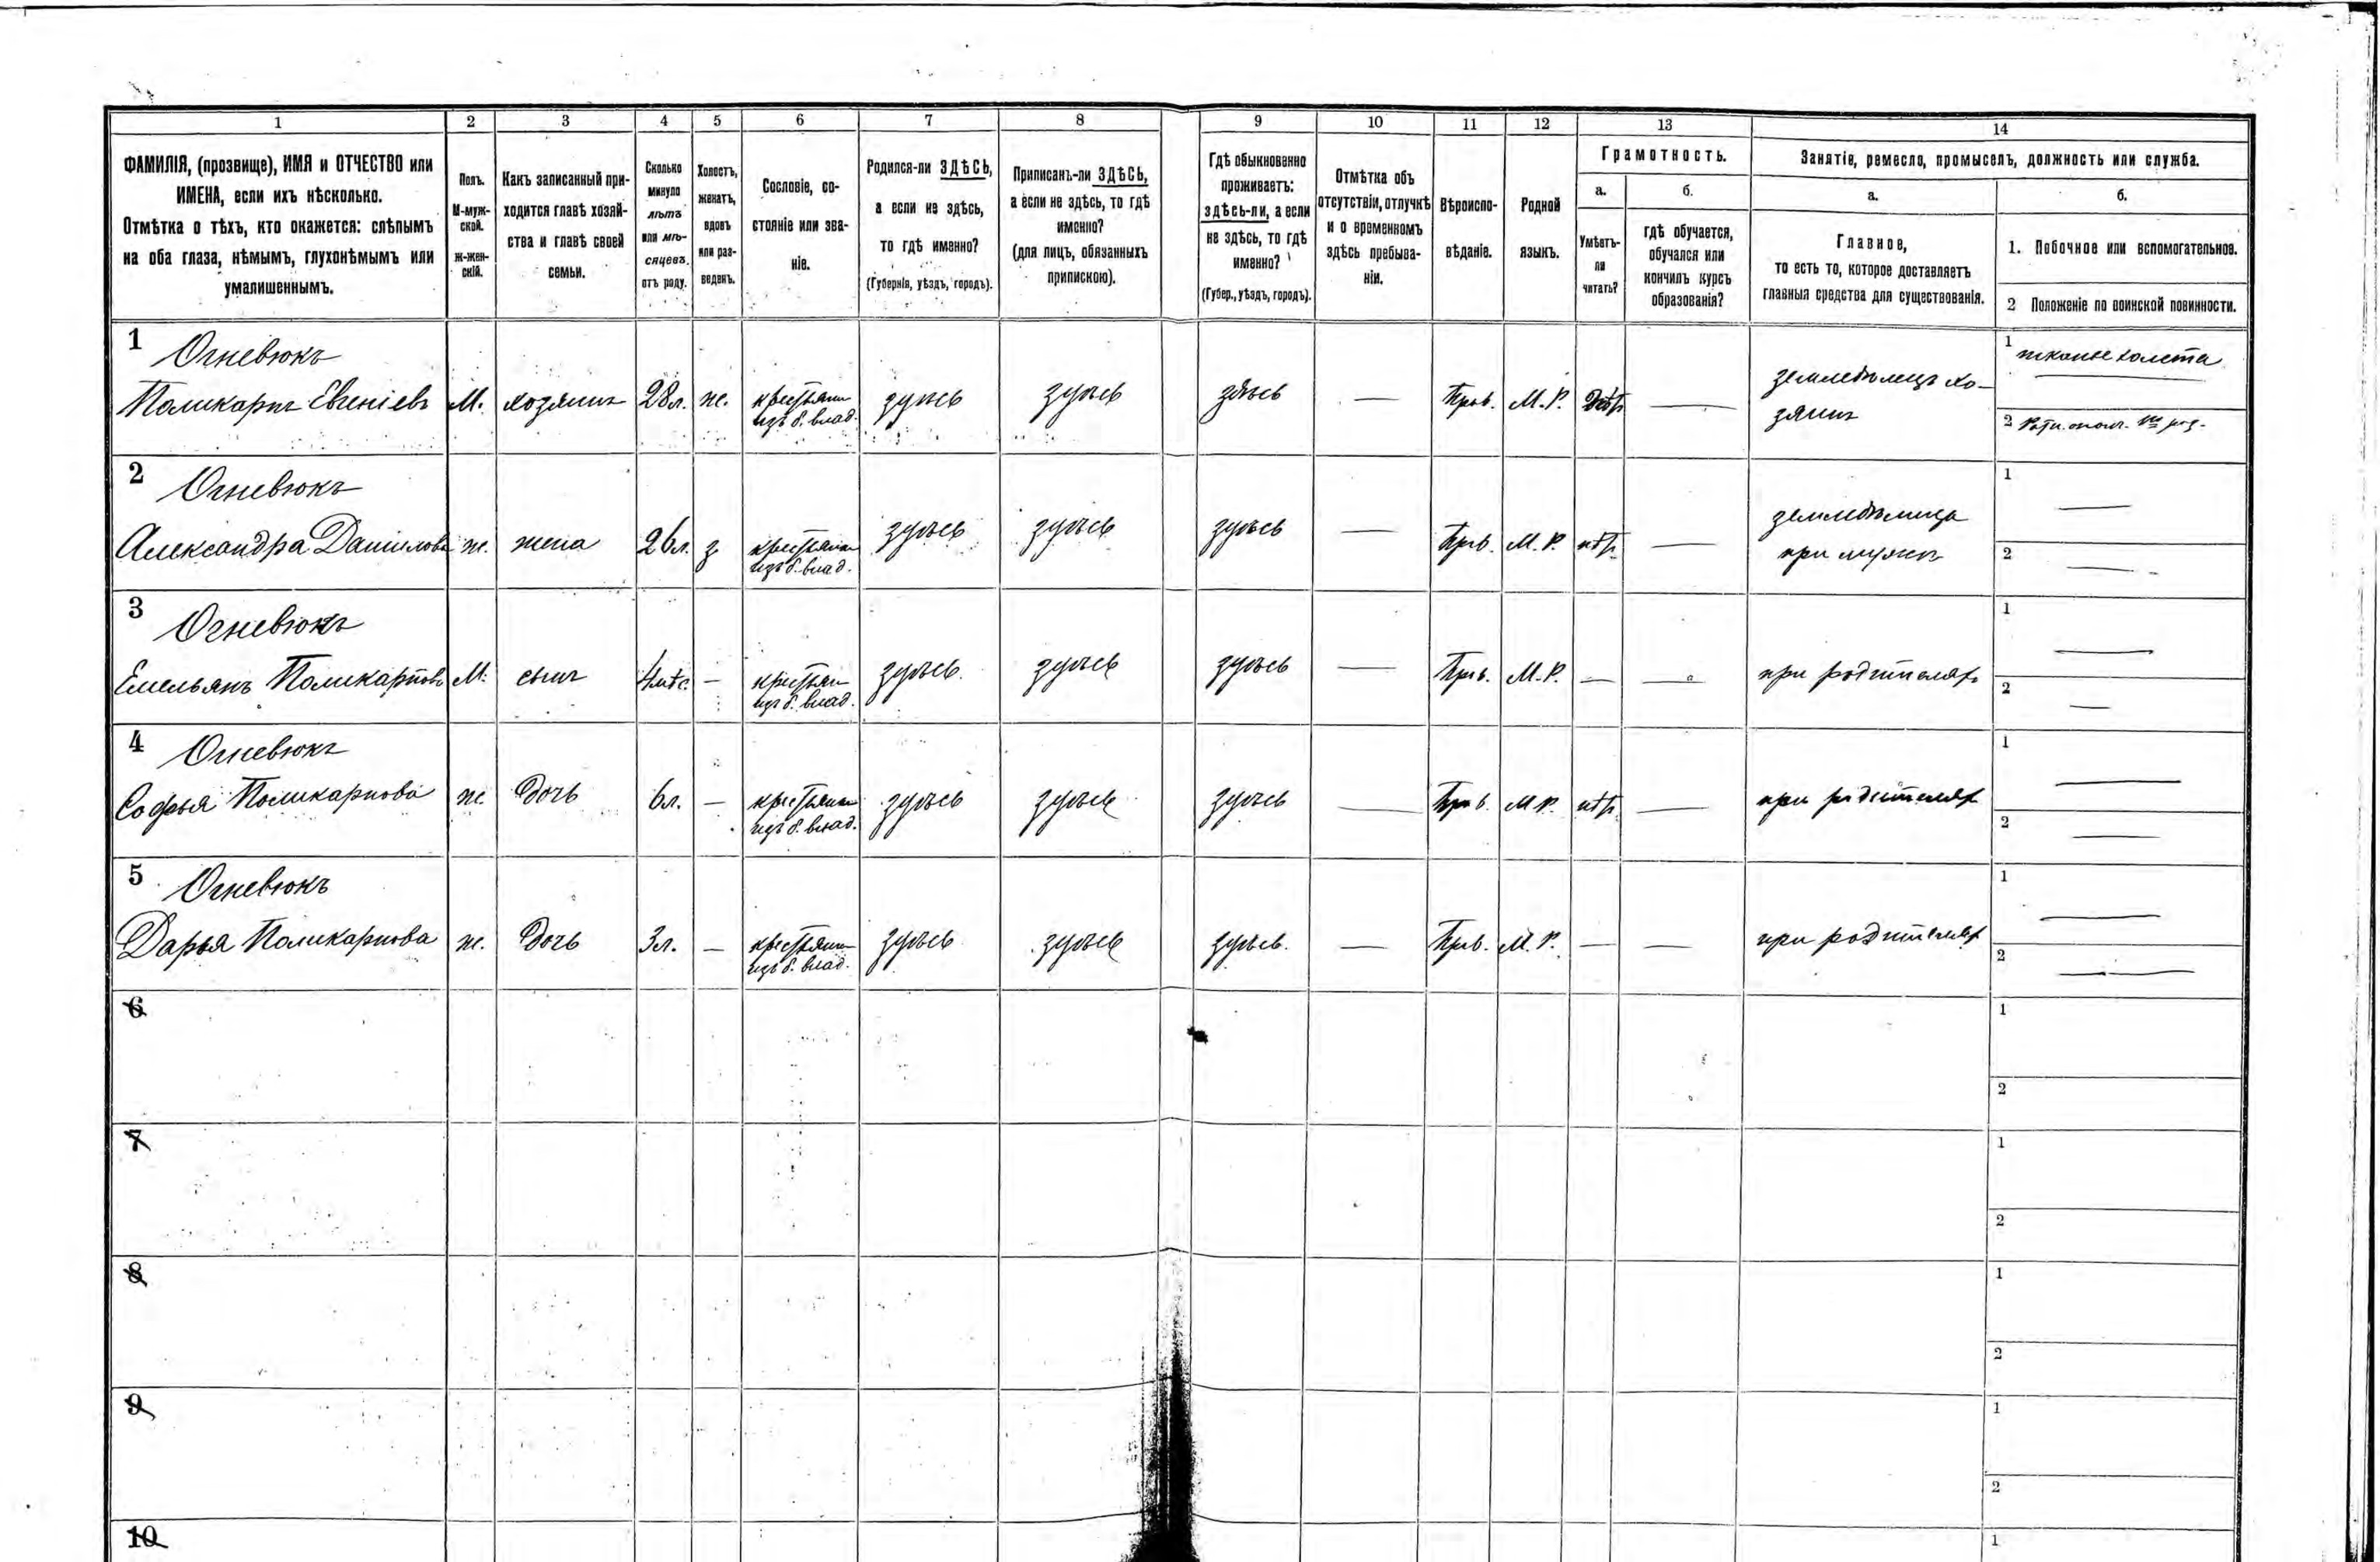 1 2 3 4 5 6 7 8 9 10 11 12 13 14
ФАМИЛІЯ, (прозвище), ИМЯ и ОТЧЕСТВО или
ИМЕНА, если ихъ нѣсколько.
Отмѣтка о тѣхъ, кто окажется: слѣпымъ
на оба глаза, нѣмымъ, глухонѣмымъ или
умалишеннымъ.
Полъ.
М-муж-
ской.
ж-жен-
скій.
Какъ записанный при-
ходится главѣ хозяй-
ства и главѣ своей
семьи.
Сколько
минуло
лѣтъ
или мѣ-
сяцевъ
отъ роду.
Холостъ,
женатъ,
вдовъ
или раз-
веденъ.
Сословіе, со-
стояніе или зва-
ніе.
Родился-ли ЗДѢСЬ,
а если не здѣсь,
то гдѣ именно?
(Губернія, уѣздъ, городъ).
Приписанъ-ли ЗДѢСЬ,
а если не здѣсь, то гдѣ
именно?
(для лицъ, обязанныхъ
припискою).
Гдѣ обыкновенно
проживаетъ:
здѣсь-ли, а если
не здѣсь, то гдѣ
именно?
(Губер., уѣздъ, городъ).
Отмѣтка объ
отсутствіи, отлучкѣ
и о временномъ
здѣсь пребыва-
ніи.
Вѣроиспо-
вѣданіе.
Родной
языкъ.
Грамотность.
а.
Умѣетъ-
ли
читать?
б.
гдѣ обучается,
обучался или
кончилъ курсъ
образованія?
Занятіе, ремесло, промыселъ, должность или служба.
а.
Главное,
то есть то, которое доставляетъ
главныя средства для существованія.
б.
1. Побочное или вспомогательное.
2 Положеніе по воинской повинности.
1 Огневюкъ
Поликарпъ Евгеніевъ М. хозяинъ 28 л. же. крестьян. здѣсь здѣсь здѣсь — Прав. М. Р. —
изъ б. влад.
земледѣлецъ хо-
зяинъ
1 тканье холста
2
2 Огневюкъ
Александра Данилова ж. жена 26 л. з крестьян. здѣсь здѣсь здѣсь — Прав. М. Р. нѣт —
изъ б. влад.
земледѣлица
при мужѣ
1 —
2 —
3 Огневюкъ
Емельянъ Поликарповъ М. сынъ 4 мѣс. — крестьян здѣсь здѣсь здѣсь — Прав. М. Р. — — при родителях
изъ б. влад.
1 —
2 —
4 Огневюкъ
Софья Поликарпова ж. дочь 6 л. — крестьян здѣсь здѣсь здѣсь — Прав. М. Р. нѣт — при родителях
изъ б. влад.
1 —
2 —
5 Огневюкъ
Дарья Поликарпова ж. дочь 3 л. — крестьян здѣсь здѣсь здѣсь. — Прав. М. Р. — — при родителях
изъ б. влад.
1 —
2 —
6
1
2
7
1
2
8
1
2
9
1
2
10
1